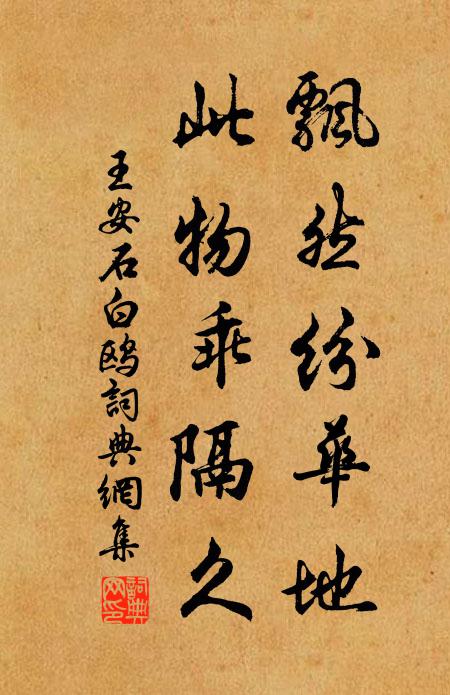 飄然紛華地
此物乖隔久
王安石白鷗詞典網集
詞典網印